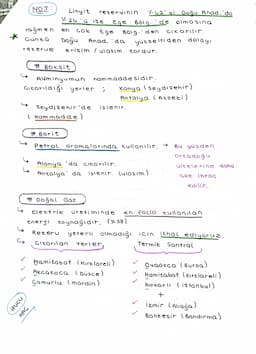 NOT: Linyit rezervinin %42'si Doğu Anad.'da
%24'ü ise Ege Bölg.'de olmasına
rağmen en çok Ege Bölg.'den çıkarılır
Çünkü Doğu Anad.'da yükseltiden dolayı
rezerve erişim / ulaşım zordur.
* Boksit
↳ Alüminyumun hammaddesidir.
Çıkarıldığı yerler ; Konya (Seydişehir)
Antalya (Akseki)
↳ Seydişehir'de işlenir.
(hammadde)
* Barit
↳ Petrol aramalarında kullanılır. → Bu yüzden
Ortadoğu
ülkelerine daha
çok ihraç
edilir.
↳ Alanya'da çıkarılır.
↳ Antalya'da işlenir. (ulaşım)
* Doğal Gaz
↳ Elektrik üretiminde en fazla kullanılan
enerji kaynağıdır. (%38)
↳ Rezerv yeterli olmadığı için ithal ediyoruz.
↳ Çıkarılan Yerler Termik Santral
Hamitabat (Kırklareli) Ovaakça (Bursa)
Akçakoca (Düzce) Hamitabat (Kırklareli)
Çamurlu (Mardin) Ambarlı (İstanbul)
+
İzmir (Aliağa)
Balıkesir (Bandırma)